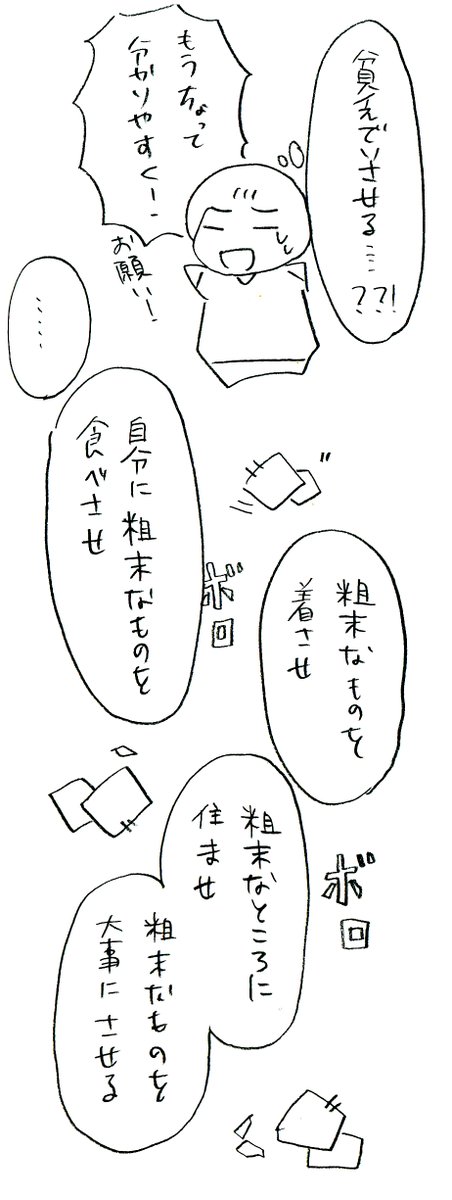 貧えでいさせる……??!
もうちょって
分かりやすくー
お願い!
……
自分に粗末なものを
食べさせ
ボロ
粗末なものを
着させ
粗末なところに
住ませ
ボロ
粗末なものを
大事にさせる